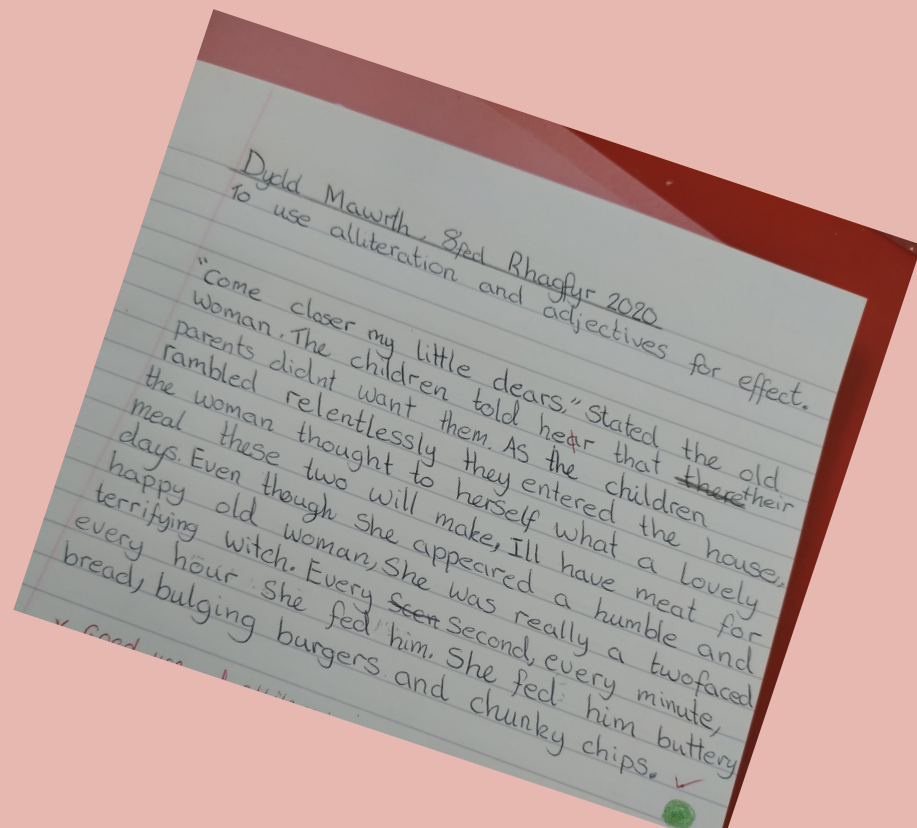 Dydd Mawrth, 8fed Rhagfyr 2020
To use alliteration and adjectives for effect.
"Come closer my little dears," Stated the old
woman. The children told hear that there their
parents didnt want them. As the children
rambled relentlessly they entered the house,
the woman thought to herself what a lovely
meal these two will make, Ill have meat for
days. Even though She appeared a humble and
happy old woman, She was really a twofaced
terrifying witch. Every Seen Second, every minute,
every hour She fed him. She fed him buttery
bread, bulging burgers and chunky chips.
Good